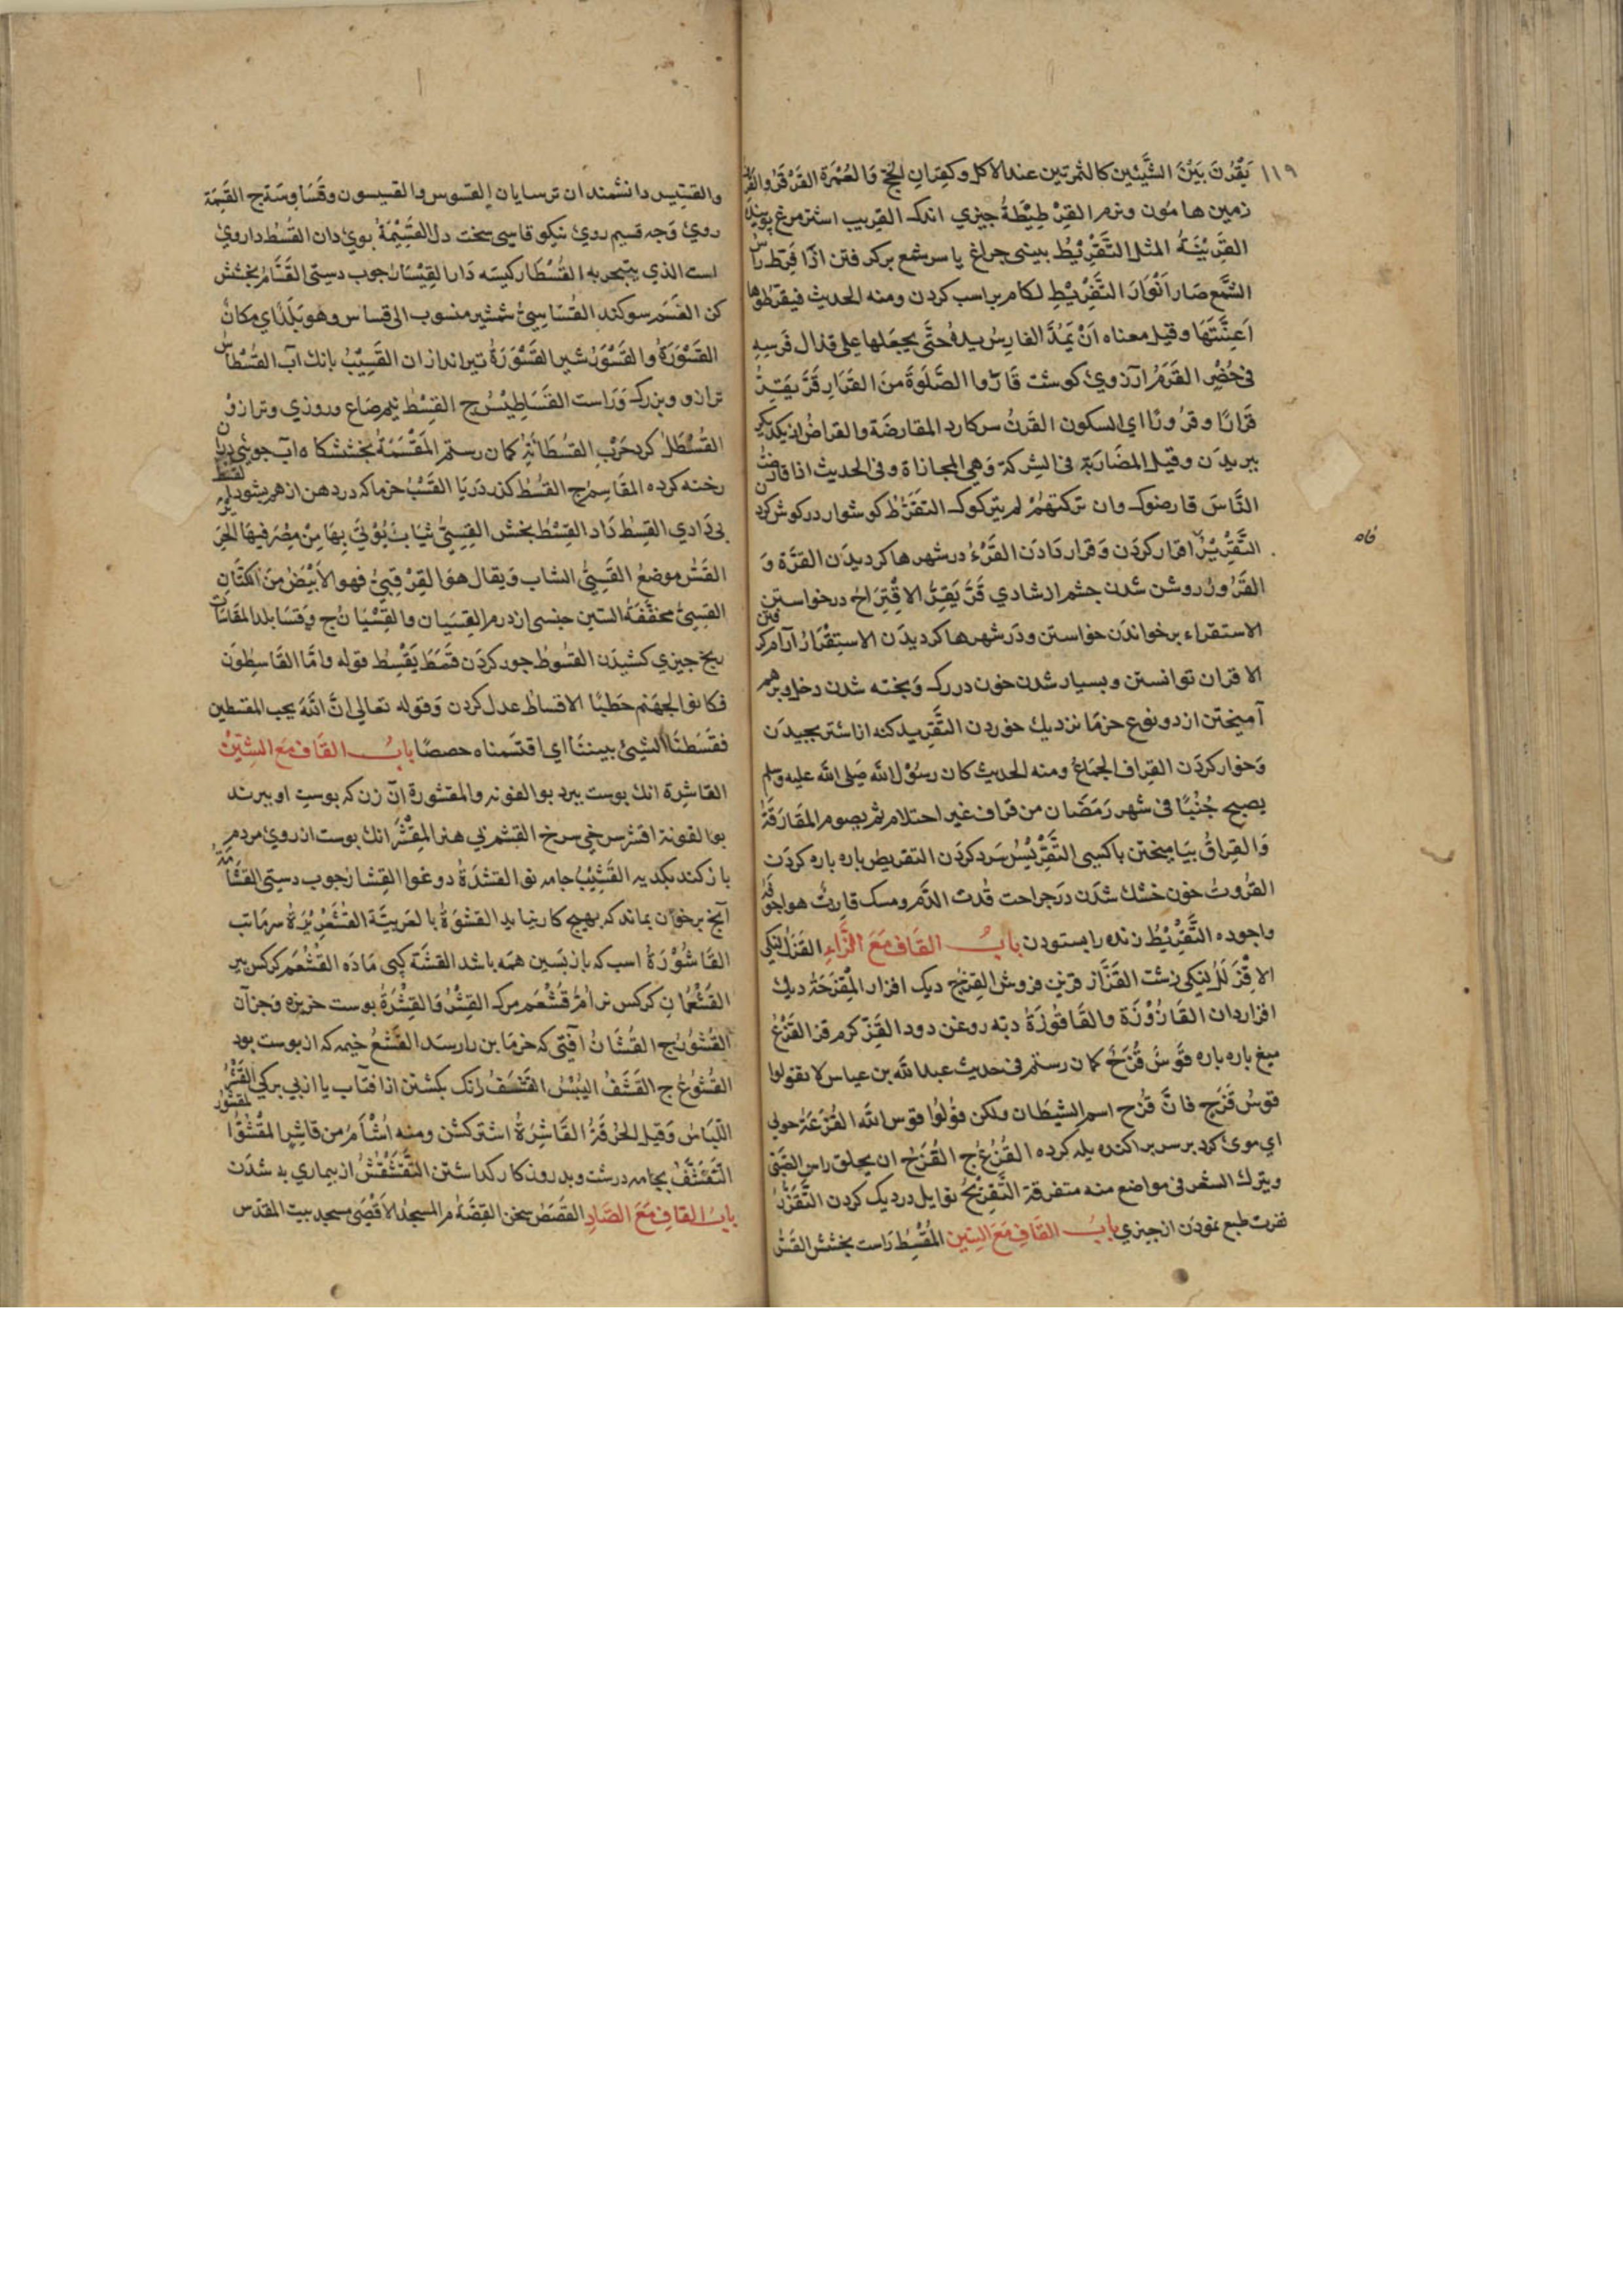 ١١٩ يَقْرُنَ بَيْنَ الشَّيْئَين كالثمرتين عند الاكل وكقِرَانِ الحَجّ وَالعُمْرَة القَرْقَرُ والقَرِقُ
زمين هامُون ونرم القِرْطِيْطَةُ چيزي اندك القريب
القَرِيْنَةُ المثل التَّقْرِيْطُ بينی چراغ يا سر شمع بر كرفتن اذا قَرِّط راسُ
الشَّمع صَارَ اَنْوَارَ التَّقْرِيْطِ لكام بر اسب كردن ومنه الحديث فيقرّطوها
اَعِنَّتَهَا وقيل معناه اَنْ يَمُدَّ الفارِسُ يدهُ حتَّی يجعَلها علی قذال فَرَسِهِ
فی حُضْرِ القَرَمُ آرزوی كوشت قَارّوا الصَّلَوةَ منَ القَرَارِ قَرَّ يَقِرُّ
قرَارًا وقرُورًا ای السكون القرنُ سركارد المقارضَة والقراضُ از يكديكر
ببريدَن وقيل المضَاربَة فی الشركة وَهی المجازاة وفی الحديث اذا قارضتَ
النَّاسَ قارضوك وان تركتهُمْ لم يتركوك التقَرّط كوشوار در كوش كردن
التَّقْرِيْرُ اقرار كردَن وَقرار دَادَن القَرْءُ در شهرها كرديدَن القرَّة وَ
القَرُورُ روشن شدن چشم از شادي قَرَّ يَقِرُّ الاقْتِرَاحُ درخواستن
الاستقراء برخواندَن خواستن ودَر شهرها كرديدَن الاستِقْرَارُ آرام كرفتن
الاقران توانستن وبسيار شدن خون در رك وَپخته شدن دخل وبرهم
آميختن از دو نوع خرمَا نزديك خوردن التَّقْرِيد كنه از اشتر بچيدَن
وَخوار كردَن القِراف الجمَاعُ ومنه الحديث كان رسُوْل الله صَلی الله عليه وسلم
يصبح جُنُبًا فی شهر رَمَضَان من قراف غير احتلام ثم يصوم المقَارَفَةُ
وَالقِراقُ بيَاميختن باكسی التَّقْرِيْسُ سَرد كردَن التقريض پاره پاره كردَن
القرُوتُ خون خشك شدَن درَ جراحت قَرَتَ الدَّم ومسك قارِتٌ هو
التَّقْرِيْظُ زنده را بستودن بابُ القَاف مَعَ الزَّاءِ القَزَلُ لنكی
الاقْزَلُ لنكی زشت القَزَّاز قزين فروش القِزْحُ ديك افزار المِقْزَحَةُ ديك
افزاردان القَازُوْزَة والقَاقُوزَةُ دبّه روغن دود القَزّ كرم قز القَزْعُ
ميغ پاره پاره قَوْسُ قُزَحُ كمان رستم فی حديث عبد الله بن عباس لا تقولوا
قوسُ قُزَح فانَّ قُزَح اسم الشيطان ولكن قوْلُوْا قوس الله القُزْعَةُ
ای موی كرد بر سر پراكنده يله كرده القُزَعُ ج القُزَحُ ان يحلق راس الصَّبی
ويترك الشعر فی مواضع منه متفرقة التَّقْزِيْحُ توابل در ديك كردن التَّقَزُّزُ
نفرت طبع نمودَن از چيزي بابُ القَافِ مَعَ السّين المُقْسِطُ رَاست بخشش القَسُّ
قاه
والقسّيس دانشمندان ترسايان القسوس والقسيسون وقسَاوِسَة ج القَسِمَة
روی وَجه قسيم روی نيكو قاسی سخت دل القَسِيْمَةُ بوی دان القُسْط داروی
است الذي يتبخر به القُسْطار كيسَه دَار القِيْسَارُ چوب دستی القَسَّامُ بخشش
كن القسَم سوكند القُسَاسِیُّ شمشير منسوب الی قساس وهو بَلَدٌ ای مكانٌ
القَسْوَرَةُ والقَسْوَرُ شير القَسْوَرَةُ تيراندازان القَسِيْبُ بانك آب القُسْطاسُ
ترازو وبزرك وَرَاست القسَاطِيْسُ ج القِسْطُ نيم صَاع وروزي وترازو
القُسْطَلُ كرد حَرْب القُسْطَانِيَّة كمان رستم المَقْسَمَةُ بخششكاه
رخنه كرده المقَاسِمُ ج القَسْبُ خرما كه در دهن از هم بشود
بی دَادي القِسْط دَاد القِسْطُ بخش القِسِیُّ ثيَابٌ يُؤْتیٰ بِهَا مِنْ مِصْرَ فيهَا الحَرِيرُ
القَسّ موضعُ القَسِیُّ الشاب وَيقال هوَ القِزّ قِیُّ فهو الاَبْيَضُ منَ الكَتَّانِ
القِسِیُّ مخفّفَةُ السّين جنسی از درم القِسَيَان والقِسْيَانُ ج وَقسَا بلد
بيخ چيزي كشيدَن القسُوطُ جور كردَن قَسَطَ يَقْسِط قوله وامَّا القَاسِطُونَ
فكانوا لجهنم حَطبًا الاقساط عدل كردن وَقوله تعالی اِنَّ اللهَ يحب المقسطين
فقَسَطْنَا الشیئ بيننَا ای اقتسَمناه حصصًا بابُ القَاف مَعَ الشِّيْنُ
القاشِرة انك پوست ببرد بوالغونه والمقشورة آن زن كه پوست او ببرند
بوالغونه اقشر سرخی سرخ القشم بی هنر المِقْشَرُ انك پوست از روی مردم
باز كند بكديه القَشِيْبُ جامه نو القشْدَةُ دوغوا القِشبَارُ چوب دستی القُشَامَةُ
آنچ بر خوان بماند كه بهيچ كار نيايد القِشوَةُ بالعَربيَّة القُشَعْرِيْرَةُ
القَاشُوْرَةُ اسب كه باز پَسين همَه باشد القشّة كپی مَادَه القَشْعَم كركس پير
القَشْعُمَان كركس نر امُّ قَشْعَم مرك القِشْرُ وَالقِشْرَةُ پوست خربزه وَجز آن
القُشُوْرُ ج القُشَانُ آفتی كه خرمَا بن را رسَد القَشْعُ خيمه كه از پوست بود
القُشُوْعُ ج القَشَفُ اليُبْسُ القَشَفُ رَنك بكشتن از آفتاب يا از بی بركی القَشُرُ
اللّبَاسُ وَقيل الخِرقَةُ القَاشِرَةُ اشتر كشن ومنه اَشْأَمُ من قاشِرٍ المَقْشُوْا
التَّقَشُّفُ بجَامه درشت وبد روزكار كداشتن التَّقَشْقُشُ از بيماري به شدَن
بابُ القاف مَعَ الصَّادِ القصَصُ سخن القِصَّةُ م المسجدُ الاَقْصَی مسجد بيت المقدس